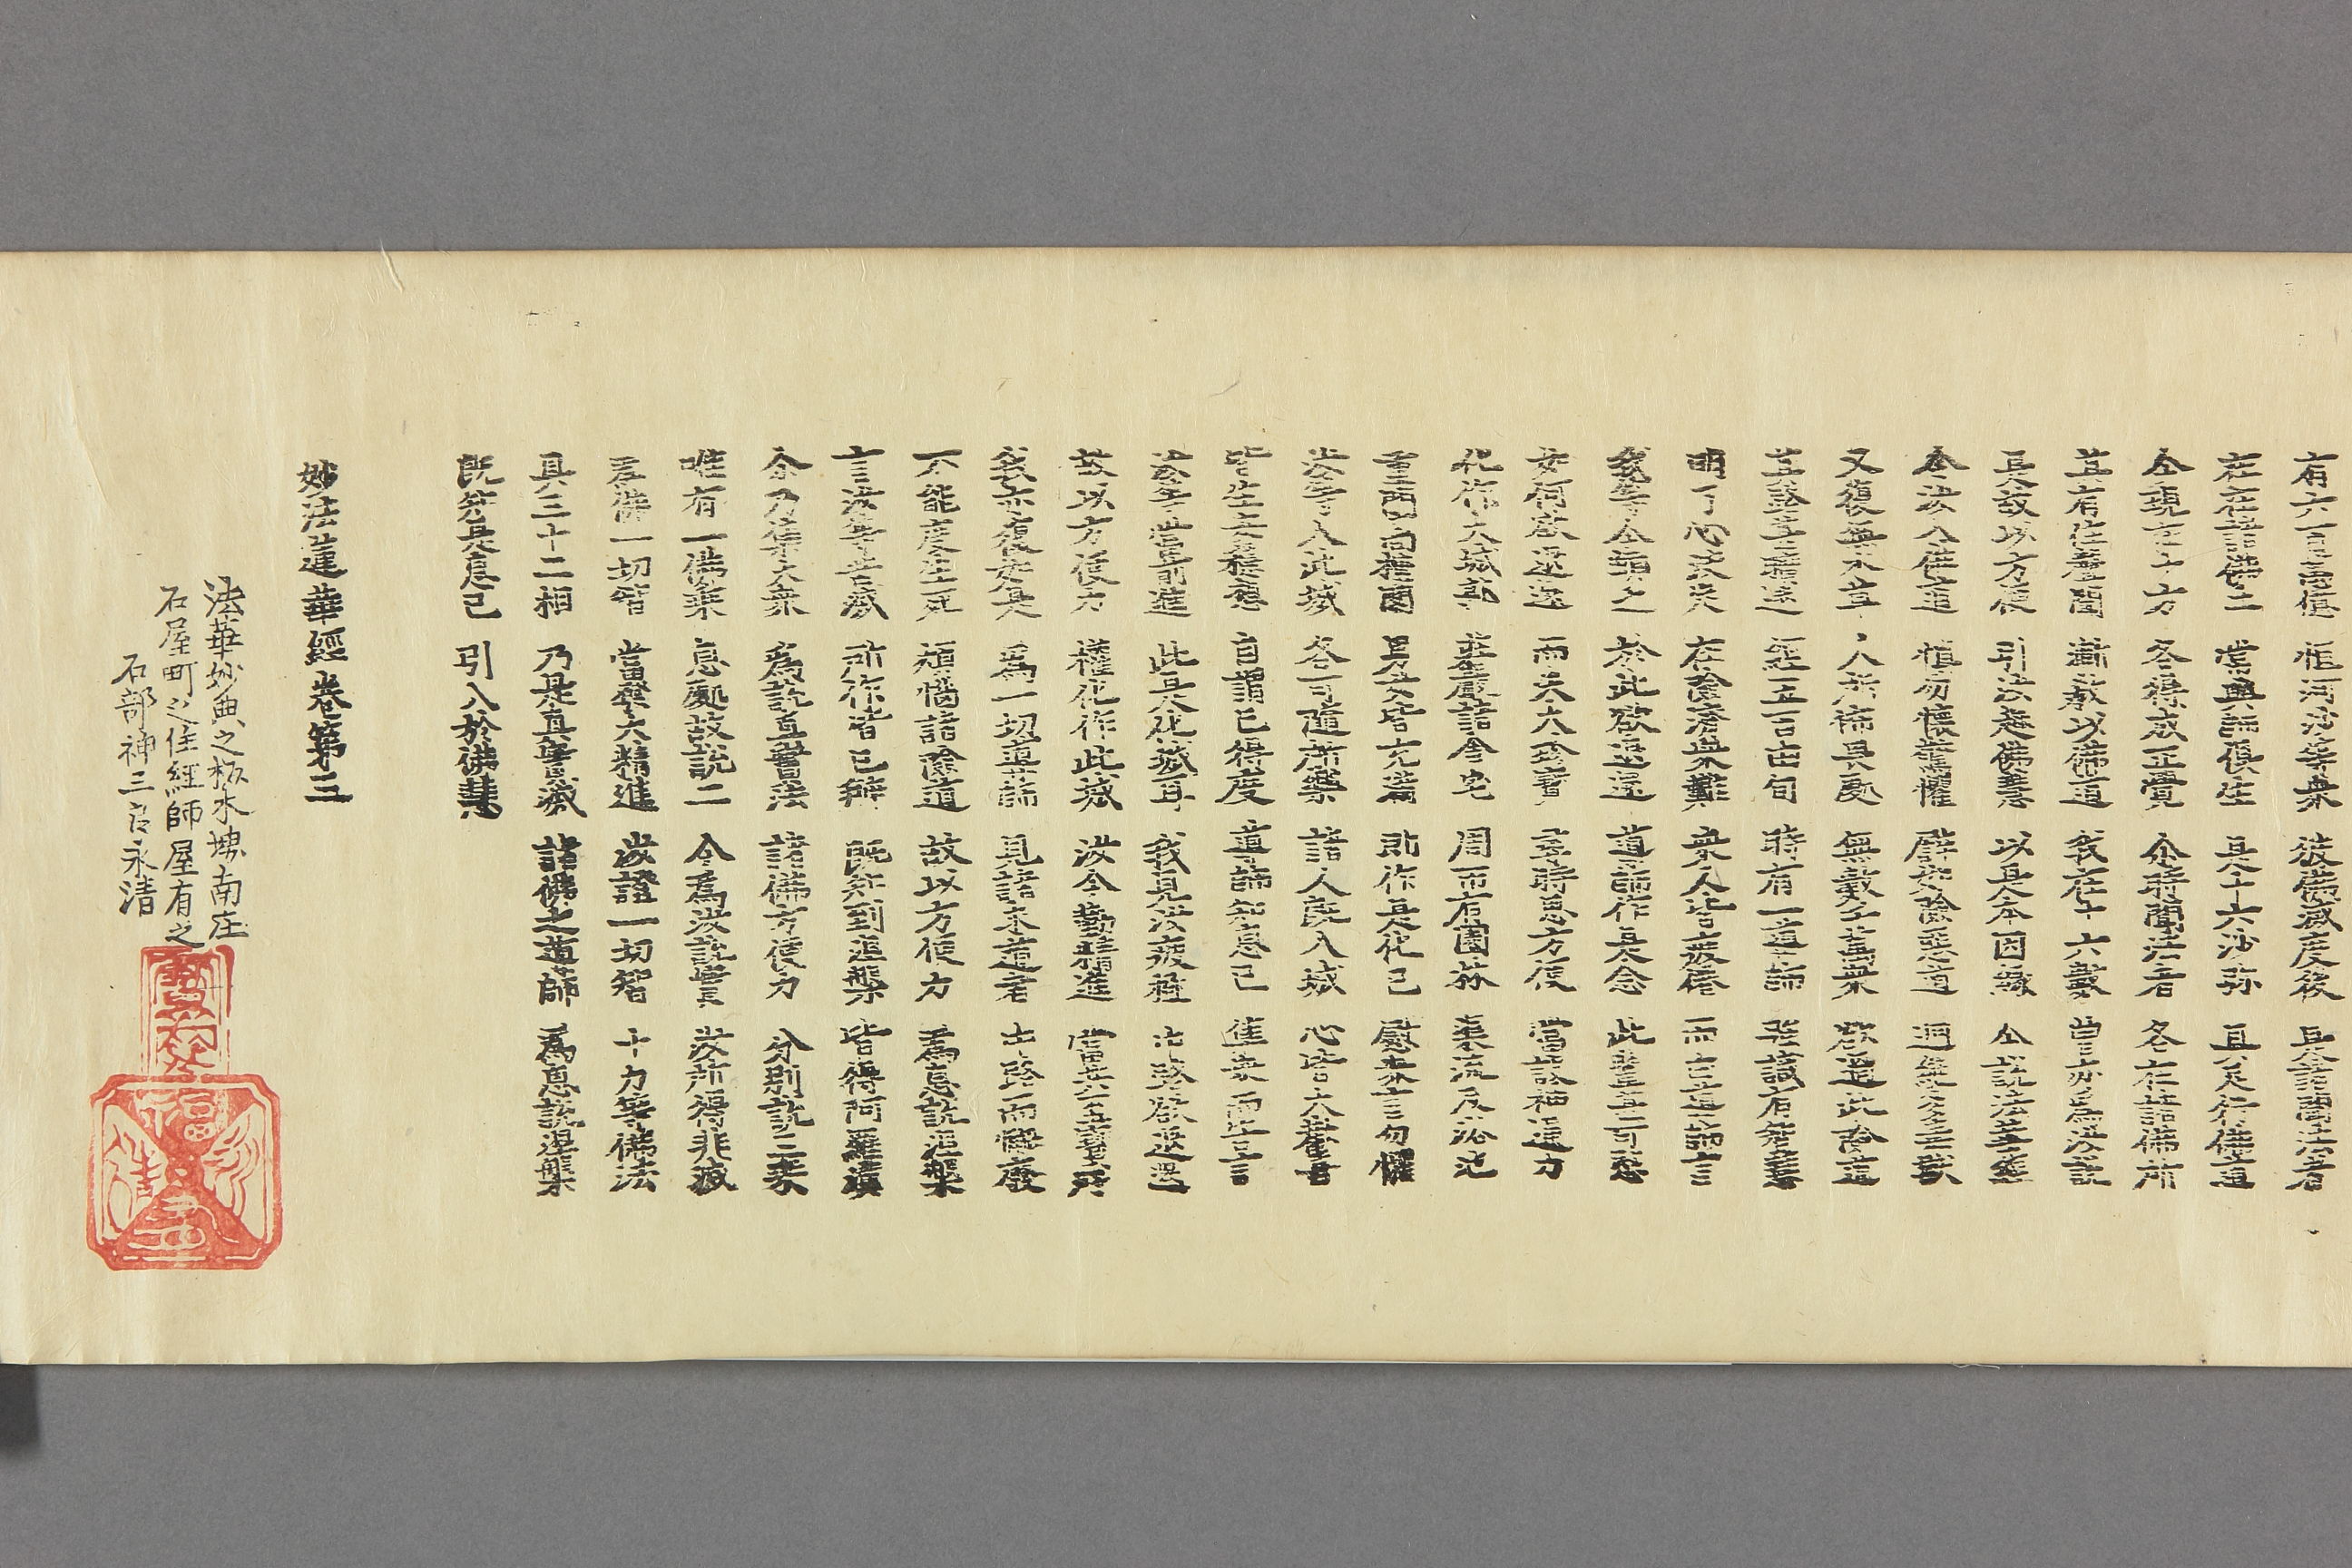 有六百萬億 恒河沙等衆 彼佛滅度後 是諸聞法者
在在諸佛土 常與師俱生 是十六沙弥 具足行佛道
今現在十方 各得成正覺 尒時聞法者 各在諸佛所
其有住聲聞 漸教以佛道 我在十六數 曽亦爲汝說
是故以方便 引汝趣佛慧 以是本因緣 今說法華經
令汝入佛道 慎勿懷驚懼 譬如險惡道 迥絕多毒獸
又復無水草 人所怖畏處 無數千萬衆 欲過此險道
其路甚曠遠 經五百由旬 時有一導師 強識有智慧
明了心決定 在險濟衆難 衆人皆疲倦 而白導師言
我等今頓乏 於此欲退還 導師作是念 此輩甚可愍
如何欲退還 而失大珍寳 尋時思方便 當設神通力
化作大城郭 莊嚴諸舍宅 周帀有園林 渠流及浴池
重門高樓閣 男女皆充滿 即作是化已 慰衆言勿懼
汝等入此城 各可隨所樂 諸人旣入城 心皆大歡喜
皆生安穏想 自謂已得度 導師知息已 集衆而告言
汝等當前進 此是化城耳 我見汝疲極 中路欲退還
故以方便力 權化作此城 汝今勤精進 當共至寳所
我亦復如是 爲一切導師 見諸求道者 中路而懈廢
不能度生死 煩惱諸險道 故以方便力 爲息說涅槃
言汝等苦滅 所作皆已辦 既知到涅槃 皆得阿羅漢
尒乃集大衆 爲說真實法 諸佛方便力 分別說三乗
唯有一佛乗 息處故說二 今爲汝說實 汝所得非滅
爲佛一切智 當發大精進 汝證一切智 十力等佛法
具三十二相 乃是真實滅 諸佛之導師 爲息說涅槃
既知是息已 引入於佛慧
妙法蓮華經卷第三
法華妙典之板木堺南庄
石屋町之住經師屋有之
石部神三良永清
福